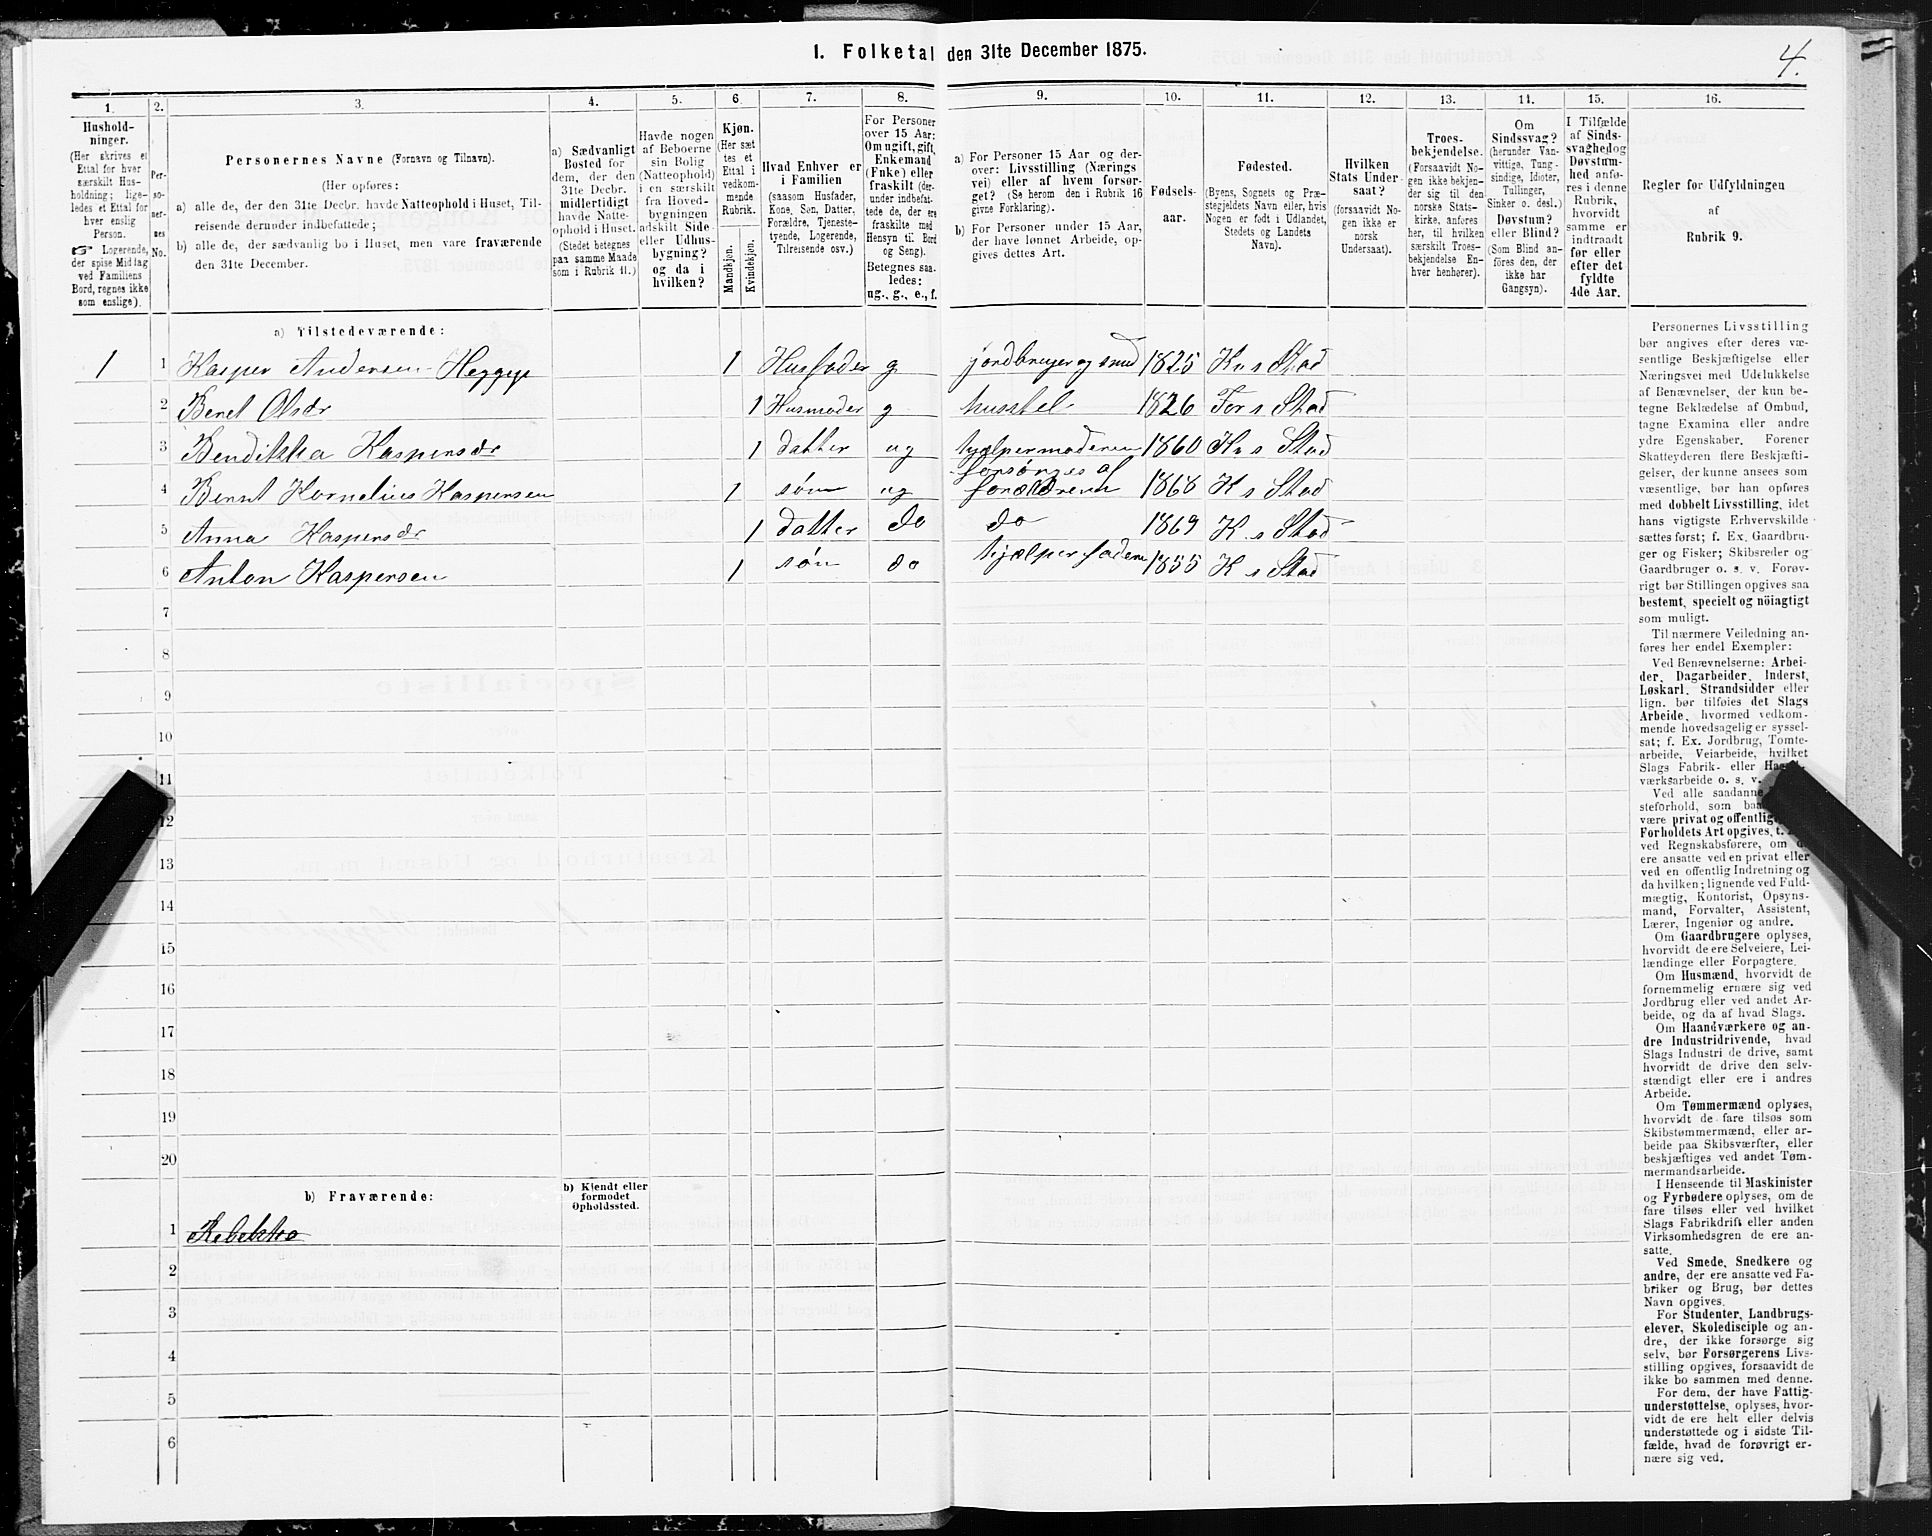 I. Folketal den 31te December 1875.
4.
1. 2. 3. 4. 5. 6. 7. 8. 9. 10. 11. 12. 13. 14. 15. 16.
Hushold-
ninger.
(Her skrives et
Ettal for hver
særskilt Hus-
holdning; lige-
ledes et Ettal for
hver enslig
Person.
☞ Logerende,
der spise Middag
ved Familiens
Bord, regnes ikke
som enslige).
Per-
so-
ner-
nes
No.
Personernes Navne (Fornavn og Tilnavn).
(Her opføres:
a) alle de, der den 31te Decbr. havde Natteophold i Huset, Til-
reisende derunder indbefattede;
b) alle de, der sædvanlig bo i Huset, men vare fraværende
den 31te December.
a) Sædvanligt
Bosted for
dem, der den
31te Decbr.
midlertidigt
havde Natte-
ophold i Huset.
(Stedet betegnes
paa samme Maade
som i Rubrik 11.)
Havde nogen
af Beboerne
sin Bolig
(Natteophold)
i en særskilt
fra Hoved-
bygningen
adskilt Side-
eller Udhus-
bygning?
og da i
hvilken?
Kjøn.
(Her sæt
tes et
Ettal i
vedkom-
mende
Rubrik.
Mandkjøn.
Kvindekjøn.
Hvad Enhver er
i Familien
(saasom Husfader,
Kone, Søn, Datter,
Forældre, Tjeneste-
tyende, Logerende,
Tilreisende osv.)
For Personer
over 15 Aar:
Om ugift, gift,
Enkemand
(Enke) eller
fraskilt (der-
under indbefat-
tede de, der ere
fraskilte med
Hensyn til Bord
og Seng).
Betegnes saa-
ledes:
ug., g., e., f.
a) For Personer 15 Aar og der-
over: Livsstilling (Nærings
vei) eller af hvem forsør-
get? (Se herom den i Rubrik 16
givne Forklaring).
b) For Personer under 15 Aar,
der have lønnet Arbeide, op-
gives dettes Art.
Fødsels-
aar.
Fødested.
(Byens, Sognets og Præ-
stegjeldets Navn eller, hvis
Nogen er født i Udlandet,
Stedets og Landets
Navn).
Hvilken
Stats Under-
saat?
(forsaavidt No-
gen ikke er
norsk
Undersaat).
Troes-
bekjendelse.
(Forsaavidt No-
gen ikke bekjen-
der sig til den
norske Stats-
kirke, anføres
her, til hvilken
særskilt Troes-
bekjendelse En-
hver henhører).
Om
Sindssvag?
(herunder Van-
vittige, Tung-
sindige, Idioter,
Tullinger,
Sinker o. desl.)
Døvstum?
eller Blind?
(Som Blind an-
føres den, der
ikke har
Gangsyn).
I Tilfælde
af Sinds-
svaghed og
Døvstum-
hed anfø-
res i denne
Rubrik,
hvorvidt
samme er
indtraadt
før eller
efter det
fyldte
4de Aar.
Regler før Udfyldningen
af
Rubrik 9.
a) Tilstedeværende:
1 1 Kasper Andersen Heggge 1 Husfader g jordbruger og smed 1825 Kr s Stad
2 Beret Olsdr 1 Husmoder g husstel 1826 For s Stad
3 Bendikka Kaspersdr 1 datter ug hjælper moderen 1860 Kr s Stad
4 Bernt Kornelius Kaspersen 1 søn ug forsørges af forældrene 1868 K s Stad
5 Anna Kaspersdr 1 datter do do 1869 K s Stad
6 Anton Kaspersen 1 søn do hjælper faderen 1855 K s Stad
7
8
9
10
11
12
13
14
15
16
17
18
19
20
b) Fraværende:
b) Kjendt eller
formodet
Opholdssted.
1 Rebekka
2
3
4
5
6
Personernes Livsstilling
bør angives efter deres væ-
sentlige Beskjæftigelse eller
Næringsvei med Udelukkelse
af Benævnelser, der kun be-
tegne Beklædelse af Ombud,
tagne Examina eller andre
ydre Egenskaber. Forener
Skatteyderen flere Beskjæfti-
gelser, der kunne ansees som
væsentlige, bør han opføres
med dobbelt Livsstilling, idet
hans vigtigste Erhvervskilde
sættes først; f. Ex. Gaardbru-
ger og Fisker; Skibsreder og
Gaardbruger o. s. v. Forøv-
rigt bør Stillingen opgives saa
bestemt, specielt og nöiagtigt
som muligt.
Til nærmere Veiledning an-
føres her endel Exempler:
Ved Benævnelserne: Arbei-
der, Dagarbeider, Inderst,
Løskarl, Strandsidder eller
lign. bør tilføies det Slags
Arbeide, hvormed vedkom-
mende hovedsagelig er syssel-
sat; f. Ex. Jordbrug, Tomte-
arbeide, Veiarbeide, hvilket
Slags Fabrik- eller
værksarbeide o. s. v.
Ved alle saadanne
steforhold, som
være privat og offentlig
Forholdets Art opgives, t.
ved Regnskabsførere, om
ere ansatte ved en privat eller
ved en offentlig Indretning og
da hvilken; lignende ved Fuld-
mægtig, Kontorist, Opsyns-
mand, Forvalter, Assistent,
Lærer, Ingeniør og andre.
Om Gaardbrugere oplyses,
hvorvidt de ere Selveiere, Lei-
lændinge eller Forpagtere.
Om Husmænd, hvorvidt de
fornemmelig ernære sig ved
Jordbrug eller ved andet Ar-
beide, og da af hvad Slags.
Om Haandværkere og an-
dre Industridrivende, hvad
Slags Industri de drive, samt
hvorvidt de drive den selv-
stændigt eller ere i andres
Arbeide.
Om Tømmermænd oplyses,
hvorvidt de fare tilsøs som
Skibstømmermænd, eller ar-
beide paa Skibsværfter, eller
beskjæftiges ved andet Tøm-
mermandsarbeide.
I Henseende til Maskinister
og Fyrbødere oplyses, om de
fare tilsøs eller ved hvilket
Slags Fabrikdrift eller anden
Virksomhedsgren de ere an-
satte.
Ved Smede, Snedkere og
andre, der ere ansatte ved Fa-
briker og Brug, bør dettes
Navn opgives.
For Studenter, Landbrugs-
elever, Skoledisciple og an-
dre, der ikke forsørge sig
selv, bør Forsørgerens Livs-
stilling opgives, forsaavidt de
ikke bo sammen med denne.
For dem, der have Fattig-
understøttelse, oplyses, hvor-
vidt de ere helt eller delvis
understøttede og i sidste Til-
fælde, hvad de forøvrigt er-
nære sig ved.